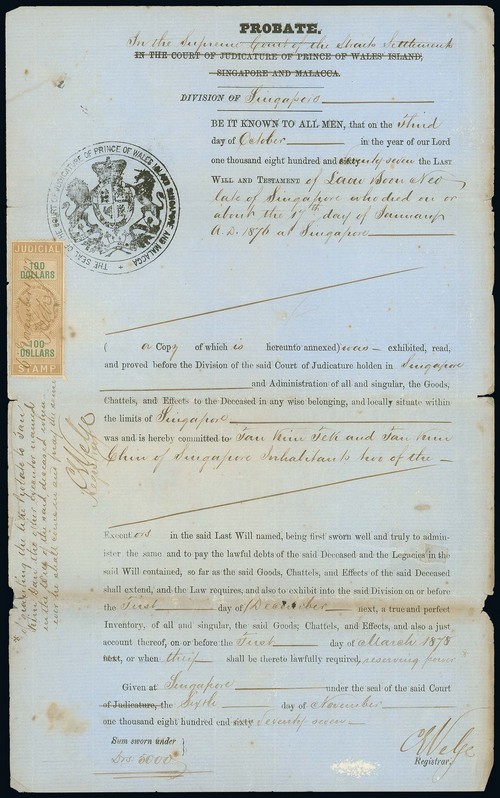 PROBATE.
In the Supreme Court of the Straits Settlements
IN THE COURT OF JUDICATURE OF PRINCE OF WALES' ISLAND,
SINGAPORE AND MALACCA.
DIVISION OF Singapore
BE IT KNOWN TO ALL MEN, that on the Third
day of October in the year of our Lord
one thousand eight hundred and seventy seven the LAST
WILL AND TESTAMENT of Laow Soon Neo
late of Singapore who died on or
about the 17th day of January
A.D. 1876 at Singapore
THE SEAL OF THE COURT OF JUDICATURE OF PRINCE OF WALES ISLAND SINGAPORE AND MALACCA
JUDICIAL
100
DOLLARS
100
DOLLARS
STAMP
( a Copy of which is hereunto annexed) was exhibited, read,
and proved before the Division of the said Court of Judicature holden in Singapore
and Administration of all and singular, the Goods,
Chattels, and Effects to the Deceased in any wise belonging, and locally situate within
the limits of Singapore
was and is hereby committed to Tan Kim Tek and Tan Kim
Chin of Singapore Inhabitants two of the
Executors in the said Last Will named, being first sworn well and truly to admin-
ister the same and to pay the lawful debts of the said Deceased and the Legacies in the
said Will contained, so far as the said Goods, Chattels, and Effects of the said Deceased
shall extend, and the Law requires, and also to exhibit into the said Division on or before
the First day of December next, a true and perfect
Inventory, of all and singular, the said Goods; Chattels, and Effects, and also a just
account thereof, on or before the First day of March 1878
next, or when they shall be thereto lawfully required, reserving power
of granting the like Probate to Tan
Kim the other Executor named
in the Will of the said deceased
he shall come in and pray the same
Registrar
Given at Singapore under the seal of the said Court
of Judicature, the Sixth day of November
one thousand eight hundred end sixty seventy seven
Sum sworn under
Drs 6000
Registrar.